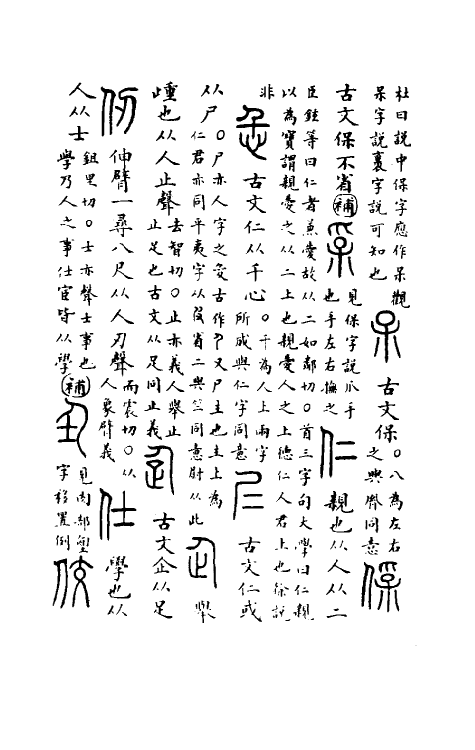 杜曰說中保字應作呆觀
呆字說裏字說可知也
𠈃 古文保 ○八為左右
之與𦡳同意 保
古文保不省 補 見保字說爪手
也手左右撫之 仁 親也从人从二
臣鉉等曰仁者兼愛故从二如鄰切○首三字句大學曰仁親
以為寶謂親愛之从二上也親愛人之上德仁人君上也徐說
非
忎 古文仁从千心 ○千為人上兩字
所咸與仁字同意 𡰥 古文仁或
从尸 ○尸亦人字之变古作尸又尸主也主上為
仁君亦同平夷字从𡰥省二與竺同意尉从此 企 舉
踵也从人止聲 去智切○止亦義人舉止
止足也古文从足同止義 𧿇 古文企从足
仞 伸臂一尋八尺从人刃聲 而震切○从
人象臂義 仕 學也从
人从士 鉏里切○士亦聲士事也
學乃人之事仕宦皆从學 補 見肉部
字移置倒 佼